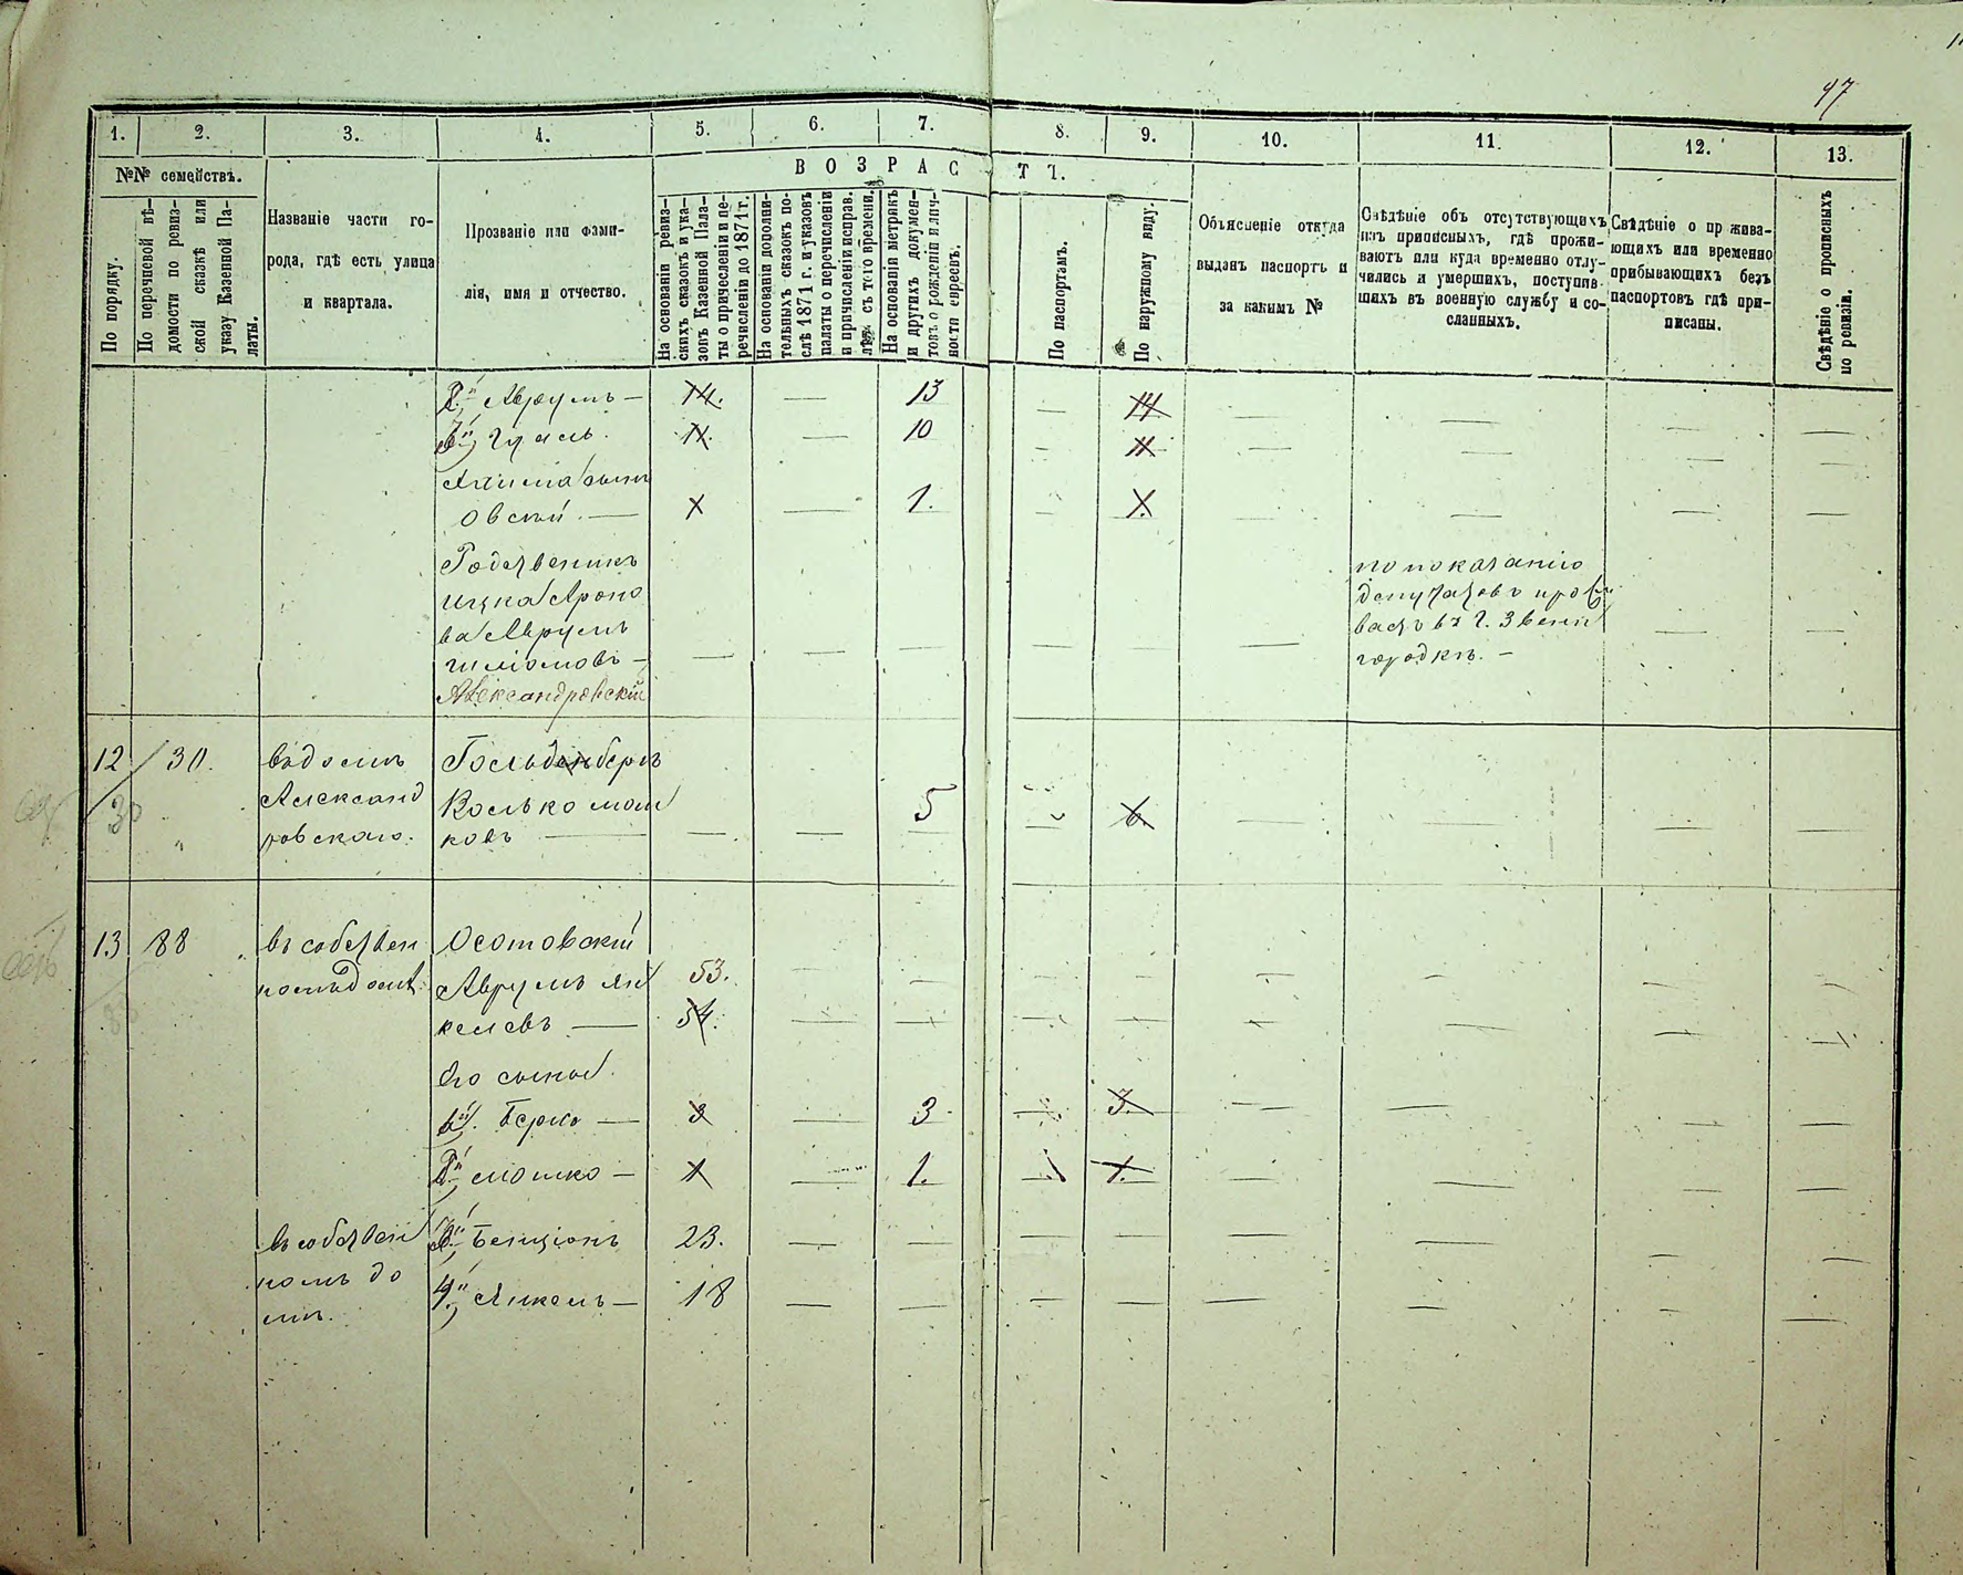 97
1. 2. 3. 4. 5. 6. 7. 8. 9. 10. 11. 12. 13.
№№ семействъ.
В О З Р А С Т Ъ.
По порядку.
По перечневой вѣ-
домости по ревиз-
ской сказкѣ или
указу Казенной Па-
латы.
Названіе части го-
рода, гдѣ есть улица
и квартала.
Прозваніе или фами-
лія, имя и отчество.
На основаніи ревиз-
скихъ сказокъ и ука-
зовъ Казенной Пала-
ты о причисленіи и пе-
речисленіи до 1871 г.
На основаніи дополни-
тельныхъ сказокъ по-
слѣ 1871 г. и указовъ
палаты о перечисленіи
и причисленіи исправ.
съ того времени.
На основаніи метрикъ
и другихъ докумен-
товъ о рожденіи и лич-
ности евреевъ.
По паспортамъ.
По наружному виду.
Объясненіе откуда
выданъ паспортъ и
за какимъ №
Свѣдѣніе объ отсутствующихъ
изъ приписныхъ, гдѣ прожи-
ваютъ или куда временно отлу-
чились и умершихъ, поступив-
шихъ въ военную службу и со-
сланныхъ.
Свѣдѣніе о пр жива-
ющихъ или временно
прибывающихъ безъ
паспортовъ гдѣ при-
писаны.
Свѣдѣніе о прописныхъ
по ревизіи.
2й Аврумъ — 14. — 13 — 14 — — — —
11. — 10 — 11 — — — —
овскій. — 1. — — — — —
Родственикъ
Ицка Ароно
ва Аврумъ
Шліомовъ —
Александровскій
по показанію
депутатовъ прожи
ваетъ въ г. Звени
городкѣ. —
12 / 30. въ домѣ Гольденбергъ
30 Александ Колько Мош 5 6.
" ровскаго. ковъ — — — — — — — —
13 88 въ собствен Осотовскій
номъ домѣ. Аврумъ Ян 53. — — — — — — —
келевъ — 54. — — — — — — — —
88
Его сыновья.
1й. Берко — 3 — 3 — 3. — — — —
2й Мошко — 1 — 1. — 1. — — — —
въ собствен 3й Бенціонъ 23. — — — — — — — —
номъ до 4й Янкель — 18 — — — — — — — —
мѣ.